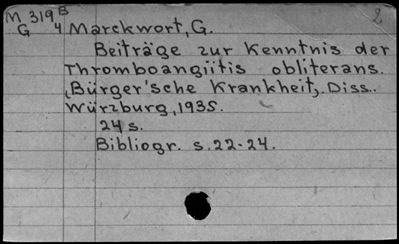 M 319 B 2
G 4 Marckwort, G.
Beiträge zur Kenntnis der
Thromboangiitis obliterans.
„Bürger'sche Krankheit„. Diss..
Würzburg, 1935.
24 s.
Bibliogr. s. 22-24.